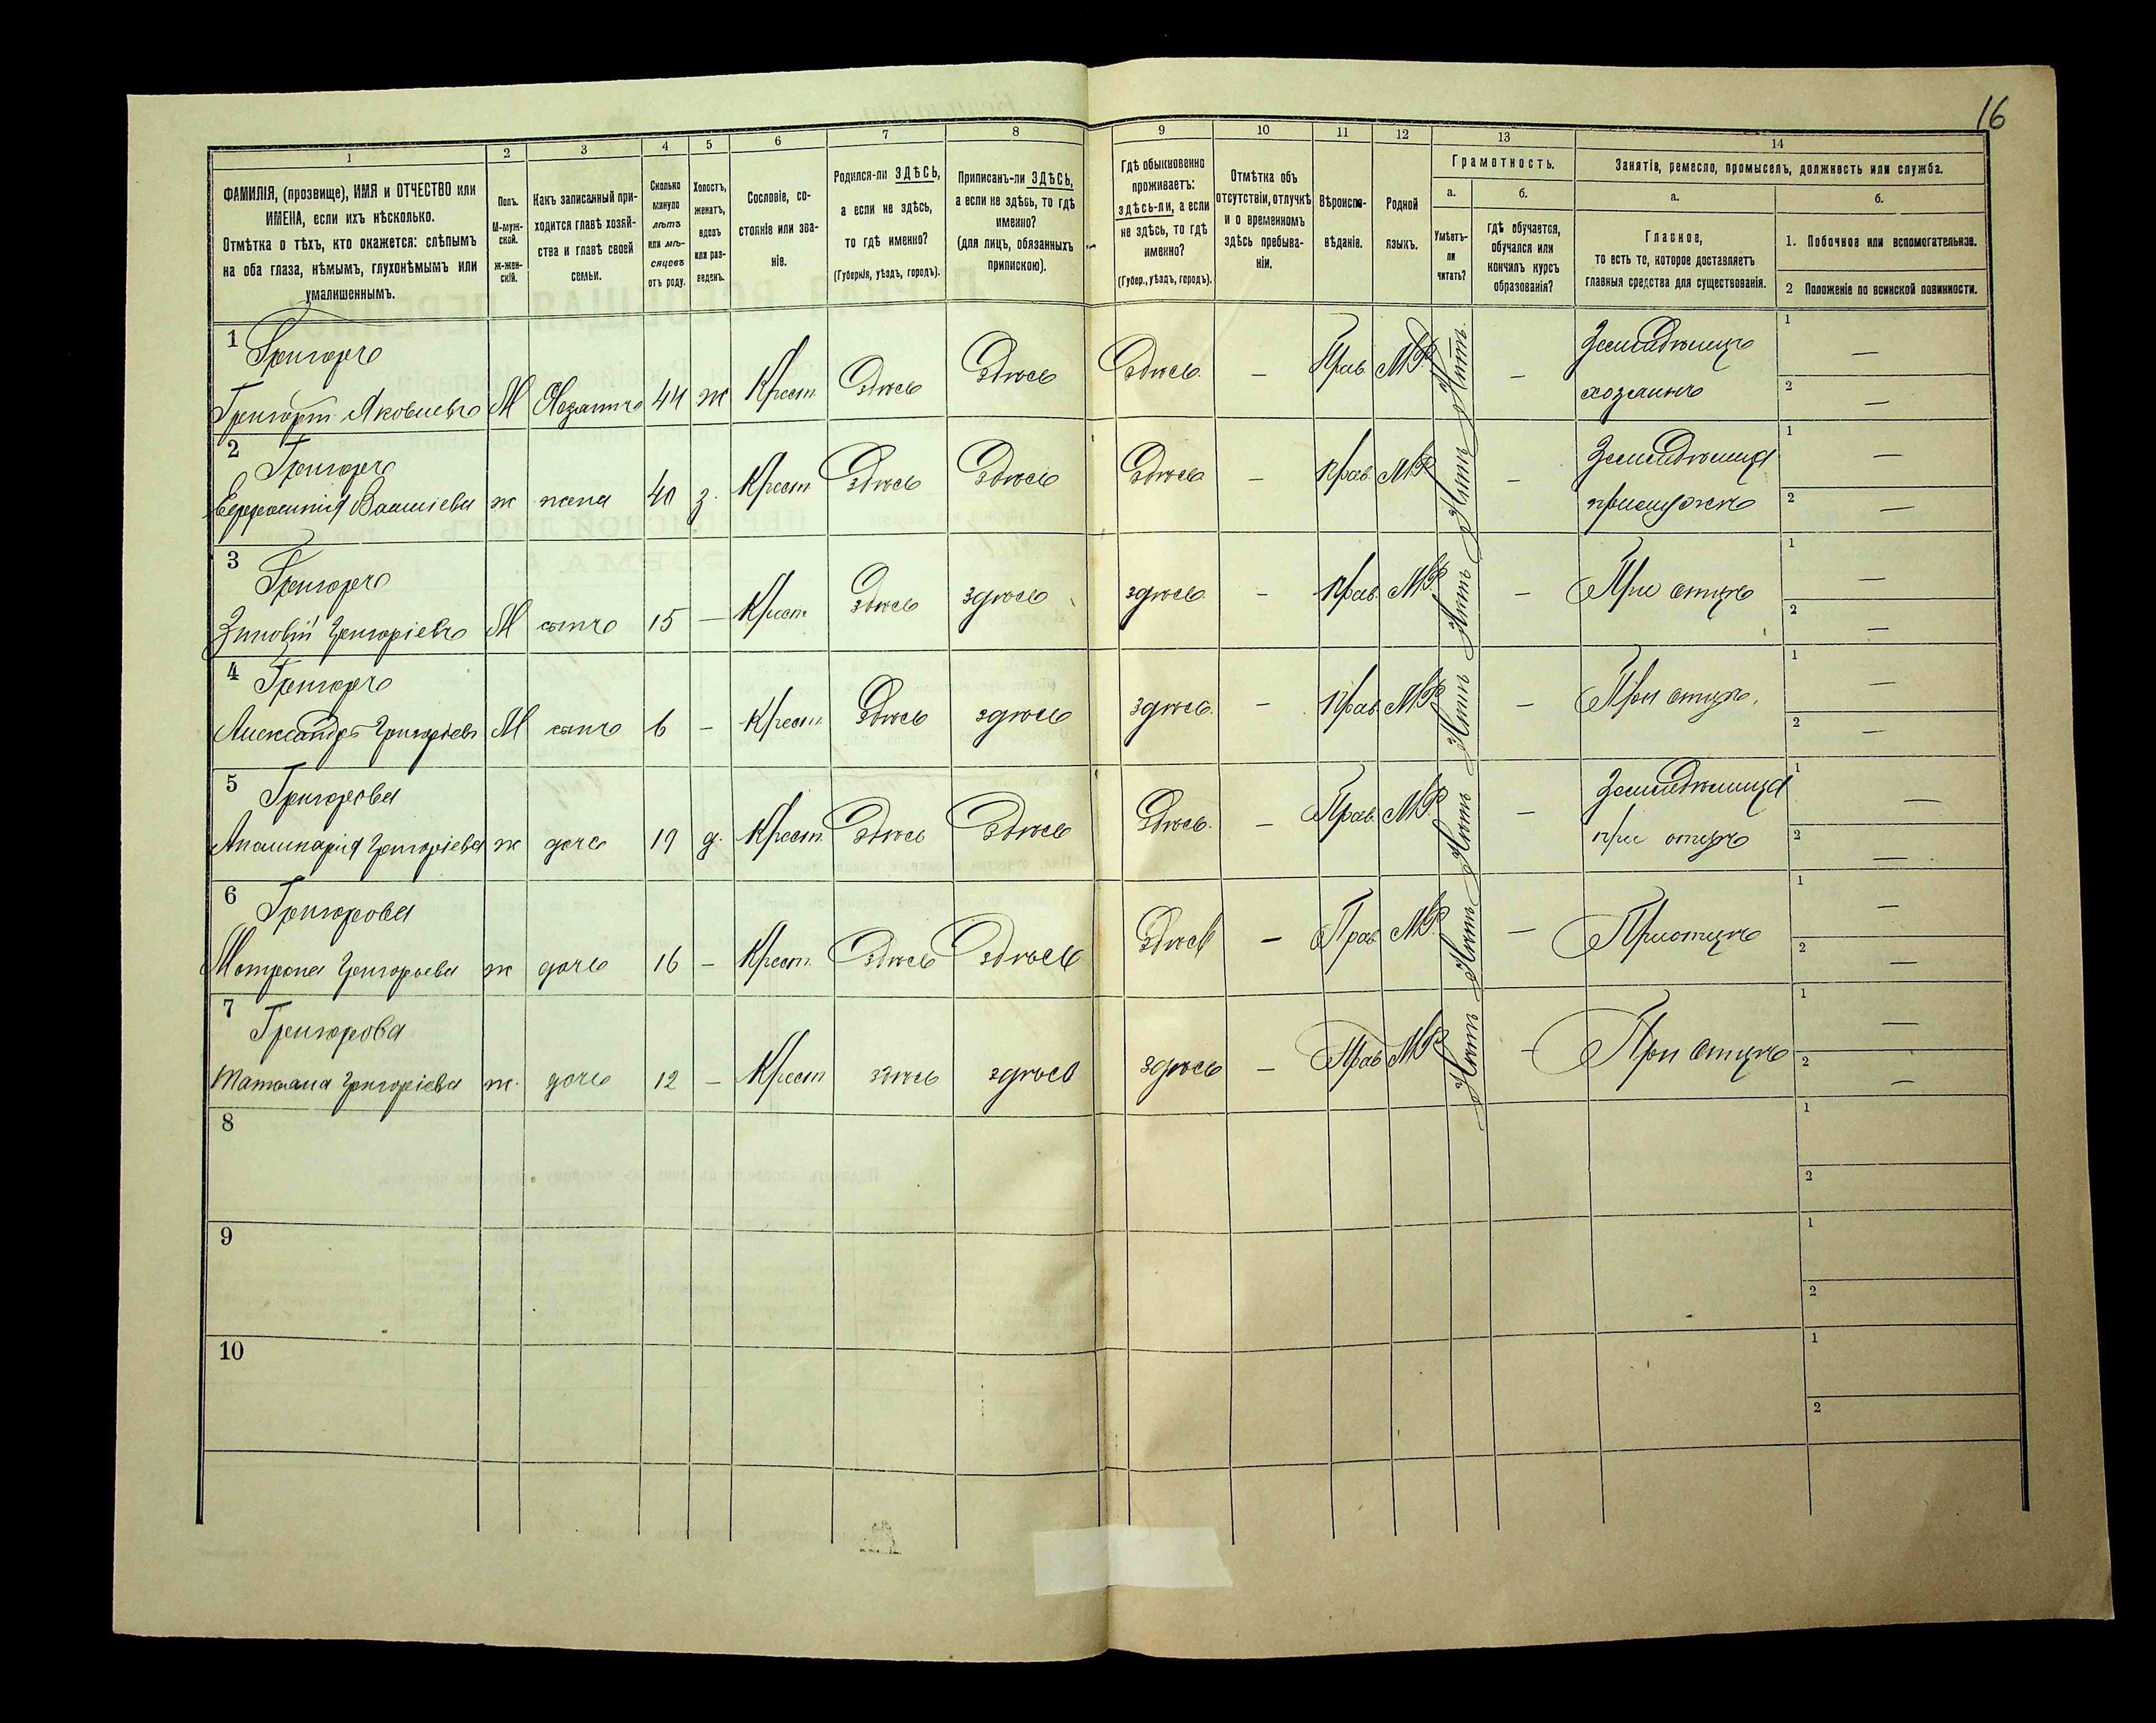 16
1
2
3
4
5
6
7
8
9
10
11
12
13
14
ФАМИЛІЯ, (прозвище), ИМЯ и ОТЧЕСТВО или
ИМЕНА, если ихъ нѣсколько.
Отмѣтка о тѣхъ, кто окажется: слѣпымъ
на оба глаза, нѣмымъ, глухонѣмымъ или
умалишеннымъ.
Полъ.
М-муж-
ской.
ж-жен-
скій.
Какъ записанный при-
ходится главѣ хозяй-
ства и главѣ своей
семьи.
Сколько
минуло
лѣтъ
или мѣ-
сяцевъ
отъ роду.
Холостъ,
женатъ,
вдовъ
или раз-
веденъ.
Сословіе, со-
стояніе или зва-
ніе.
Родился-ли ЗДѢСЬ,
а если не здѣсь,
то гдѣ именно?
(Губернія, уѣздъ, городъ).
Приписанъ-ли ЗДѢСЬ,
а если не здѣсь, то гдѣ
именно?
(для лицъ, обязанныхъ
припискою).
Гдѣ обыкновенно
проживаетъ:
здѣсь-ли, а если
не здѣсь, то гдѣ
именно?
(Губер., уѣздъ, городъ).
Отмѣтка объ
отсутствіи, отлучкѣ
и о временномъ
здѣсь пребыва-
ніи.
Вѣроиспо-
вѣданіе.
Родной
языкъ.
Грамотность.
а.
б.
Умѣетъ-
ли
читать?
гдѣ обучается,
обучался или
кончилъ курсъ
образованія?
Занятія, ремесло, промыселъ, должность или служба.
а.
б.
Главное,
то есть то, которое доставляетъ
главныя средства для существованія.
1. Побочное или вспомогательное.
2 Положеніе по воинской повинности.
1 Григоръ
Григорій Яковлевъ М Хозяинъ 44 ж Крест. Здѣсь Здѣсь Здѣсь. — Прав. Нѣтъ — Земледѣлецъ
хозяинъ
1 —
2 —
2 Григоръ
Евфросинія Васильева ж жена 40 з. Крест Здѣсь Здѣсь Здѣсь — Прав. Нѣтъ — Земледѣлица
при мужѣ
1 —
2 —
3 Григоръ
Зиновій Григоріевъ М сынъ 15 — Крест. Здѣсь здѣсь здѣсь. — Прав. Нѣтъ — При отцѣ
1 —
2 —
4 Григоръ
Александръ Григоріевъ М сынъ 6 — Крест. Здѣсь здѣсь здѣсь. — Прав. Нѣтъ — При отцѣ.
1 —
2 —
5 Григорова
Аполинарія Григоріева ж дочь 19 д. Крест. Здѣсь Здѣсь Здѣсь. — Прав. Нѣтъ — Земледѣлица
при отцѣ
1 —
2 —
6 Григорова
Матрона Григорьева ж дочь 16 — Крест. Здѣсь Здѣсь Здѣсь — Прав. Нѣтъ — При отцѣ
1 —
2 —
7 Григорова
Татіана Григоріева ж. дочь 12 — Крест здѣсь здѣсь здѣсь — Прав Нѣтъ — При отцѣ
1 —
2 —
8
1
2
9
1
2
10
1
2